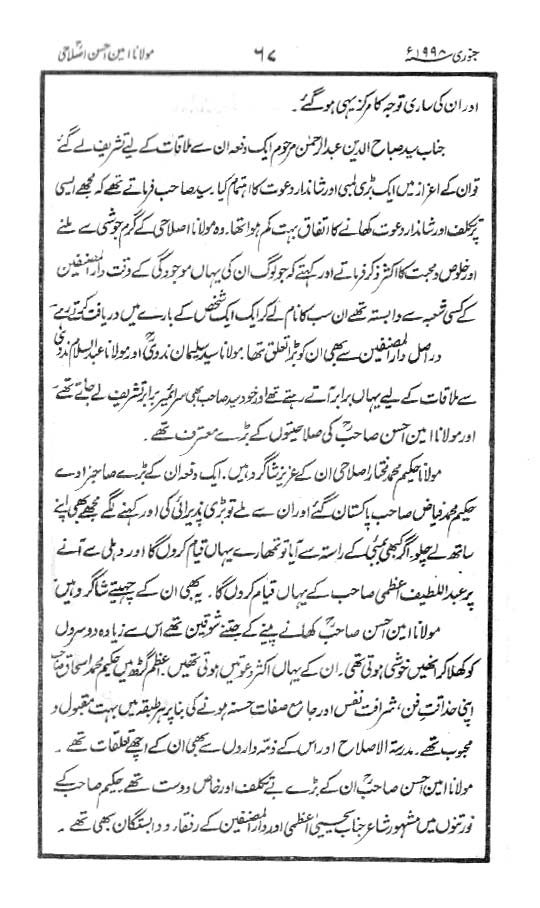 جنوری ۱۹۹۸ء ۶۷ مولانا امین احسن اصلاحیؒ
اور ان کی ساری توجہ کا مرکز یہی ہو گئے۔
جناب سید صباح الدین عبدالرحمٰن مرحوم ایک دفعہ ان سے ملاقات کے لیے تشریف لے گئے
تو ان کے اعزاز میں ایک بڑی لمبی اور شاندار دعوت کا اہتمام کیا۔ سید صاحب فرماتے تھے کہ مجھے ایسی
پرتکلف اور شاندار دعوت کھانے کا اتفاق بہت کم ہوا تھا۔ وہ مولانا اصلاحی کے گرم جوشی سے ملنے
اور خلوص و محبت کا اکثر ذکر فرماتے اور کہتے کہ جو لوگ ان کی یہاں موجودگی کے وقت دارالمصنفین
کے کسی شعبہ سے وابستہ تھے ان سب کا نام لے کر ایک ایک شخص کے بارے میں دریافت کرتے رہے
دراصل دارالمصنفین سے بھی ان کو بڑا تعلق تھا۔ مولانا سید سلیمان ندویؒ اور مولانا عبدالسلام ندویؒ
سے ملاقات کے لیے یہاں برابر آتے رہتے تھے اور خود سید صاحب بھی سرائمیر برابر تشریف لے جاتے تھے
اور مولانا امین احسن صاحبؒ کی صلاحیتوں کے بڑے معترف تھے۔
مولانا حکیم محمد مختار اصلاحی ان کے عزیز شاگرد ہیں۔ ایک دفعہ ان کے بڑے صاحبزادے
حکیم محمد فیاض صاحب پاکستان گئے اور ان سے ملے تو بڑی پذیرائی کی اور کہنے لگے مجھے بھی اپنے
ساتھ لے چلو۔ اگر کبھی بمبئی کے راستہ سے آیا تو تمہارے یہاں قیام کروں گا اور دہلی سے آنے
پر عبداللطیف اعظمی صاحب کے یہاں قیام کروں گا۔ یہ بھی ان کے چہیتے شاگرد ہیں
مولانا امین احسن صاحبؒ کھانے پینے کے جتنے شوقین تھے اس سے زیادہ دوسروں
کو کھلا کر انھیں خوشی ہوتی تھی۔ ان کے یہاں اکثر دعوتیں ہوتی تھیں۔ اعظم گڑھ میں حکیم محمد اسحاق صاحب
اپنی حذاقتِ فن، شرافت نفس اور جامع صفات حسنہ ہونے کی بنا پر ہر طبقہ میں بہت مقبول و
محبوب تھے۔ مدرسۃ الاصلاح اور اس کے ذمہ داروں سے بھی ان کے اچھے تعلقات تھے۔
مولانا امین احسن صاحبؒ ان کے بڑے بے تکلف اور خاص دوست تھے۔ حکیم صاحب کے
نورتنوں میں مشہور شاعر جناب یحییٰ اعظمی اور دارالمصنفین کے رفقاء و وابستگان بھی تھے۔